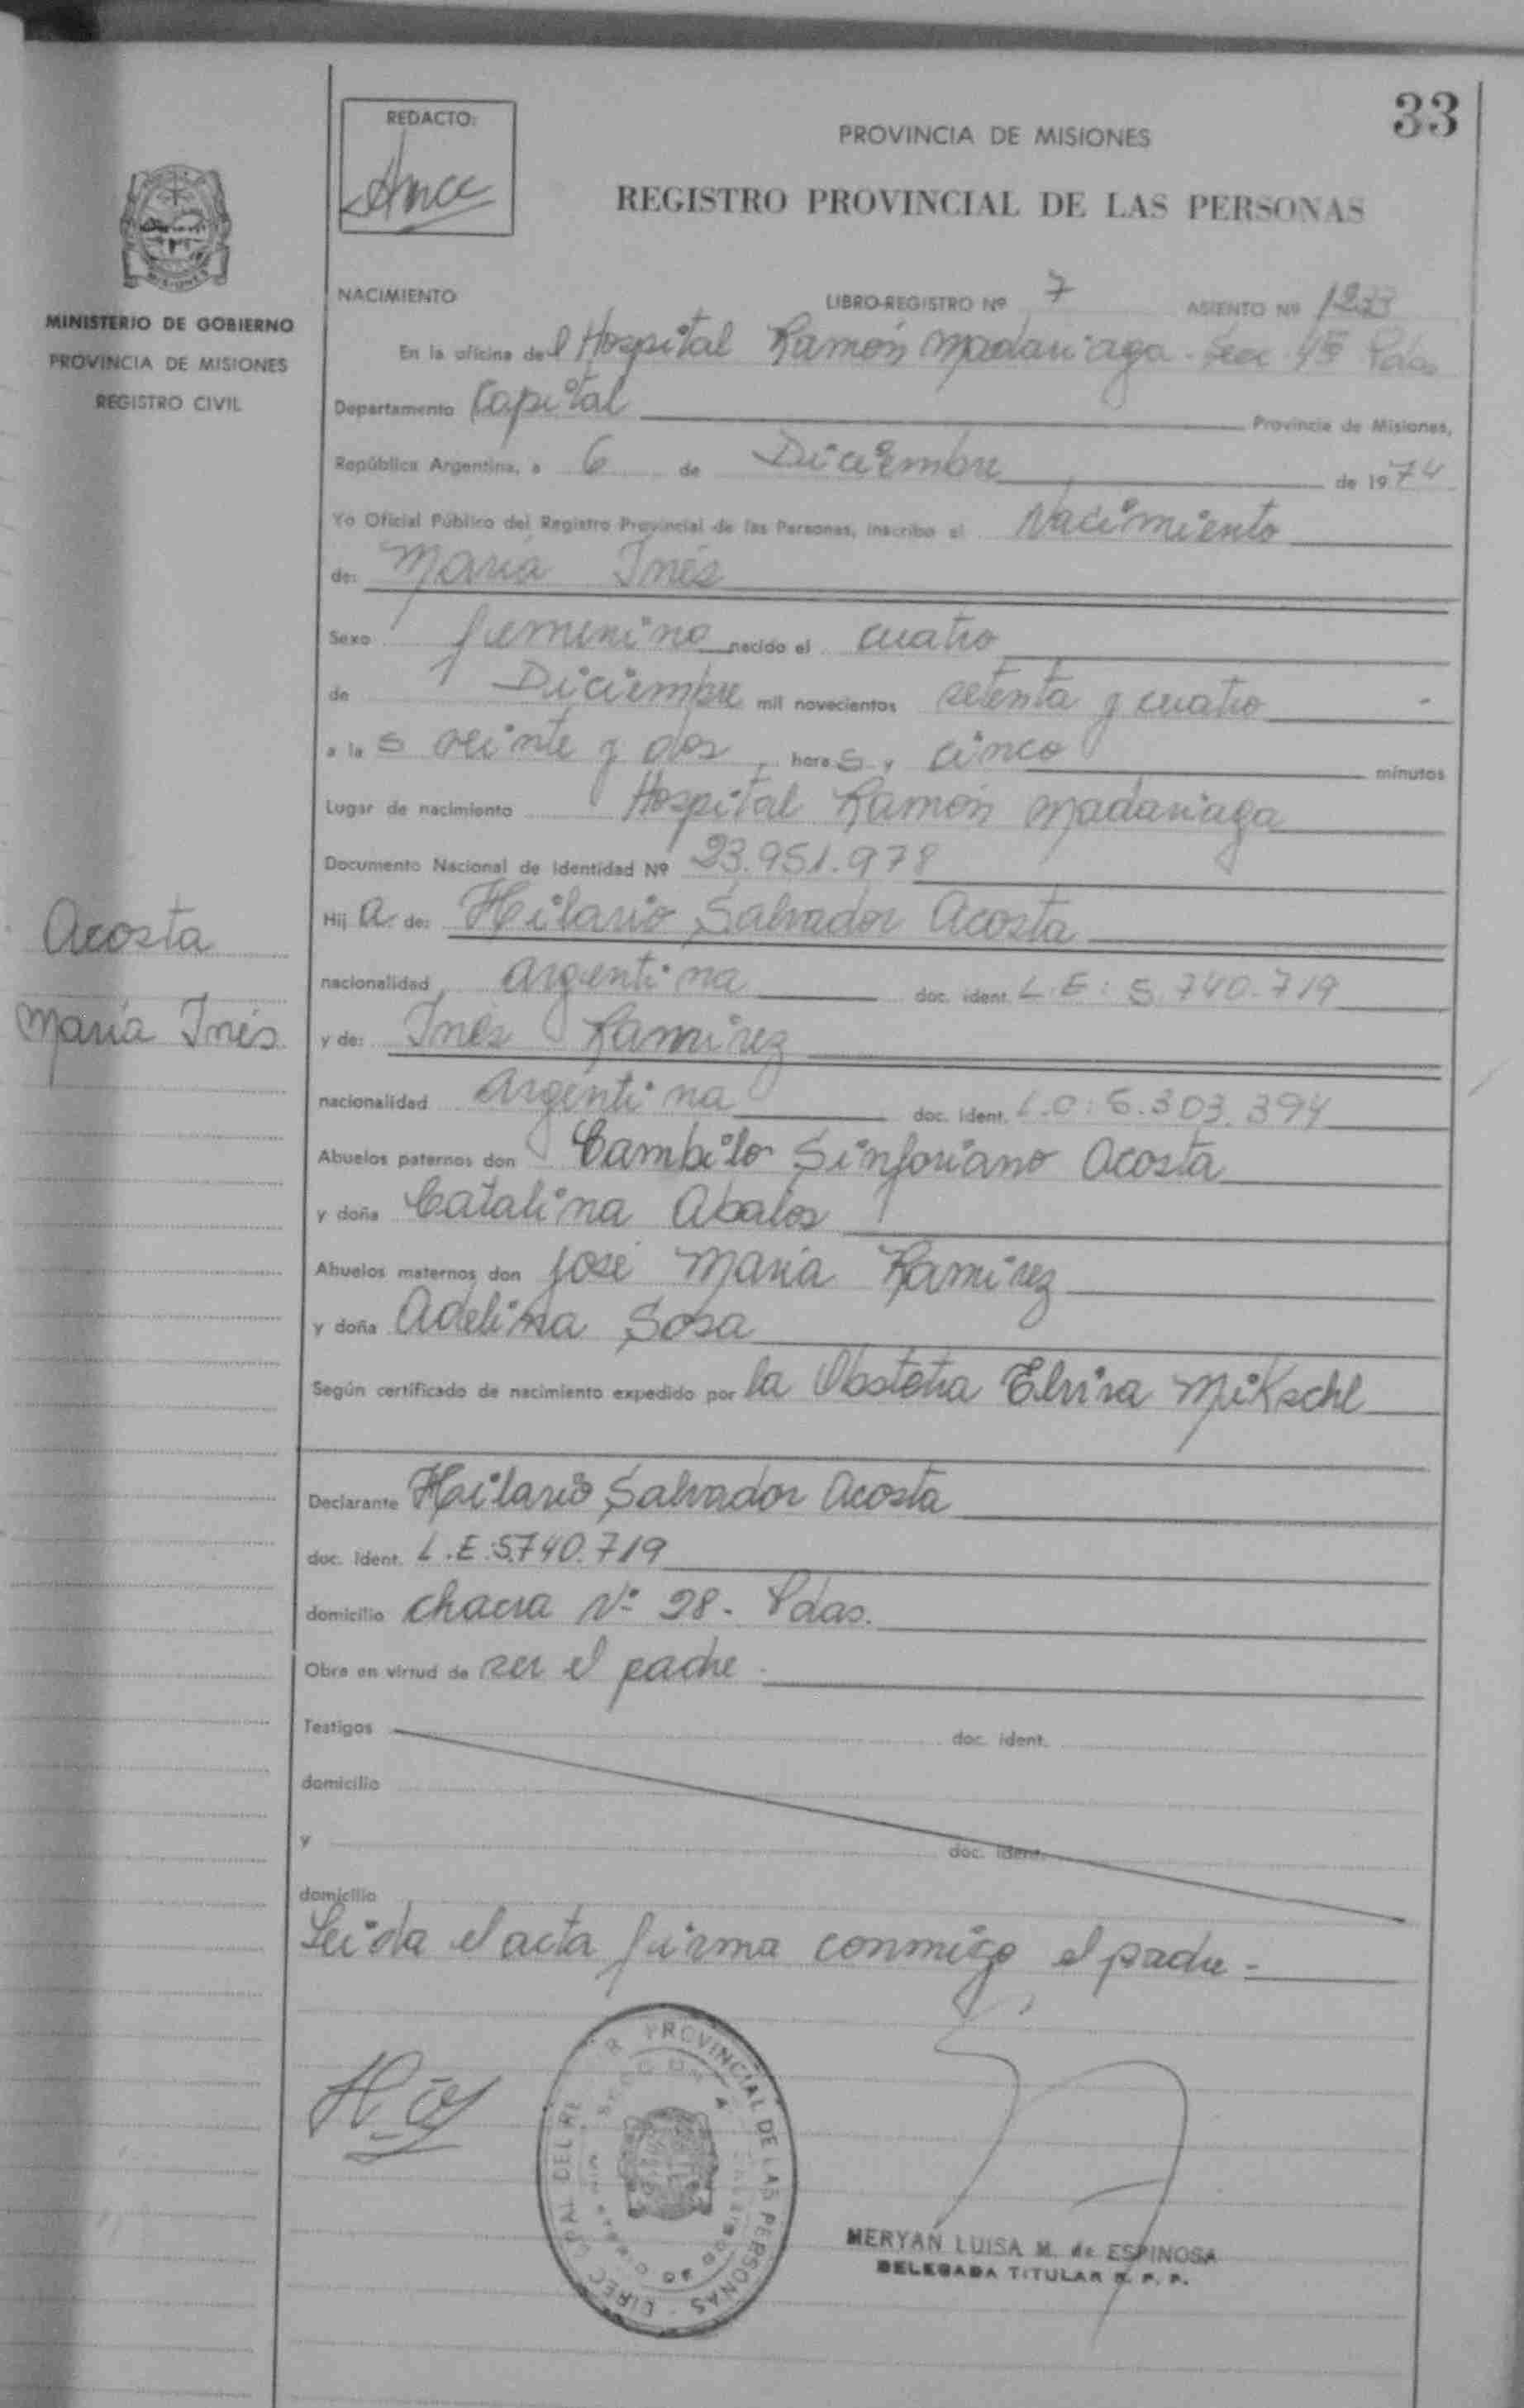 33
REDACTO:
PROVINCIA DE MISIONES
REGISTRO PROVINCIAL DE LAS PERSONAS
MISIONES
MINISTERIO DE GOBIERNO
PROVINCIA DE MISIONES
REGISTRO CIVIL
NACIMIENTO LIBRO-REGISTRO Nº 7 ASIENTO Nº 1233
En la oficina del Hospital Ramón Madariaga - Sec. Pdas
Departamento Capital Provincia de Misiones,
República Argentina, a 6 de Diciembre de 1974
Yo Oficial Público del Registro Provincial de las Personas, inscribo el Nacimiento
de: María Inés
Sexo femenino nacido el cuatro
de Diciembre mil novecientos setenta y cuatro -
a las veinte y dos, horas, cinco minutos
Lugar de nacimiento Hospital Ramón Madariaga
Documento Nacional de Identidad Nº 23.951.978
Hija de: Hilario Salvador Acosta
Acosta
María Inés
nacionalidad argentina doc. ident. L.E: 5.740.719
y de: Inés Ramirez
nacionalidad argentina doc. ident. L.C: 6.303.394
Abuelos paternos don Cambilo Sinforiano Acosta
y doña Catalina Abalos
Abuelos maternos don José María Ramirez
y doña Adelina Sosa
Según certificado de nacimiento expedido por la Obstetra Elvira Mikschl
Declarante Hilario Salvador Acosta
doc. ident. L.E:5.740.719
domicilio chacra Nº 28- Pdas.
Obra en virtud de ser el padre -
Testigos doc. ident.
domicilio
y doc. ident.
domicilio
Leida el acta firma conmigo el padre -
PROVINCIAL DE LAS PERSONAS - DIREC. GRAL. DEL RE
MERYAN LUISA M. de ESPINOSA
DELEGADA TITULAR R. P. P.